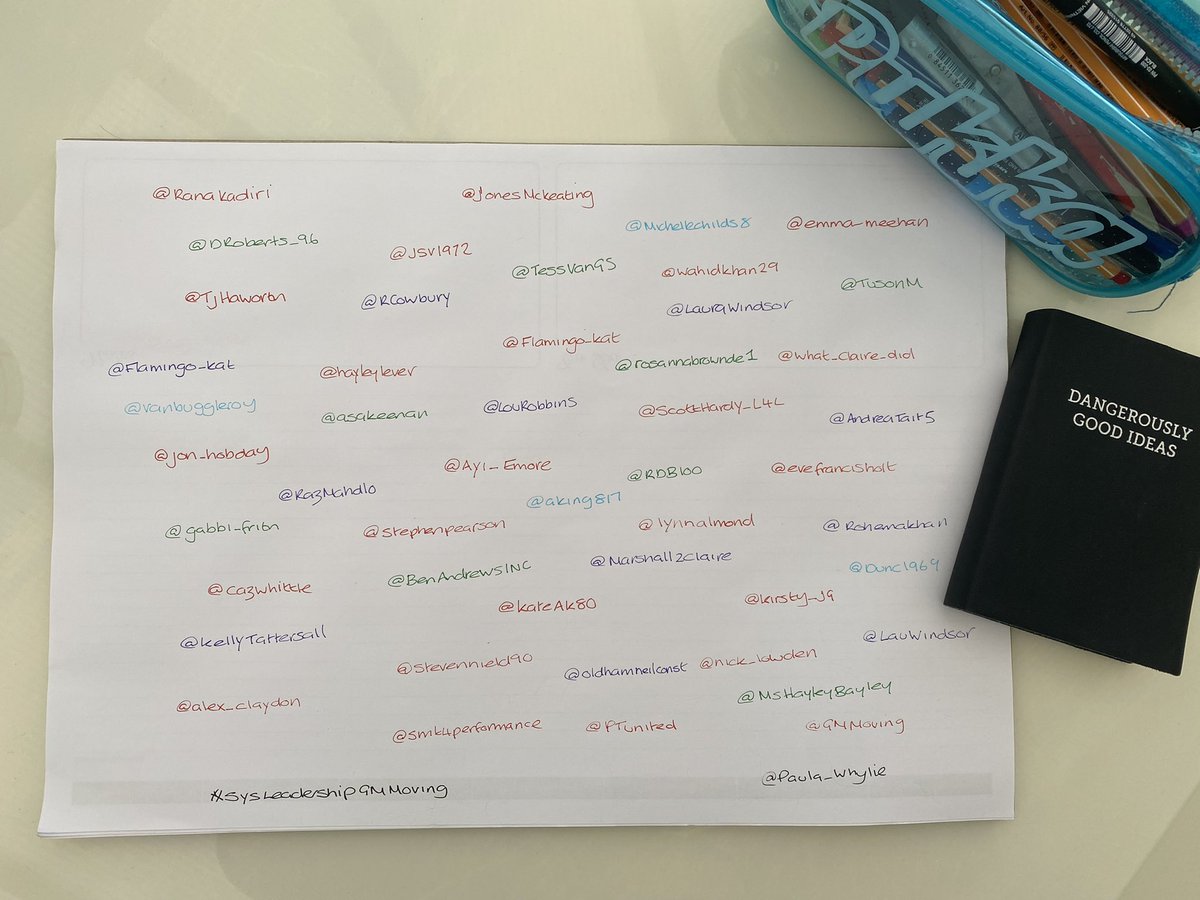 @Ranakadiri
@JonesMckeating
@Michellechilds8
@emma-meehan
@DRoberts_96
@JSV1972
@TessVanGS
@wahidkhan29
@TusonM
@TjHaworth
@RCowbury
@LauraWindsor
@Flamingo_kat
@Flamingo_kat
@hayleylever
@rosannabrownde1
@what_claire_did
@vanbuggleroy
@asakeenan
@LouRobbins
@ScottHardy_L4L
@AndreaTait5
@jon_hobday
@Ayi_Emore
@RDB100
@evefrancisholt
@RazMahd10
@aking817
@gabbi_frith
@stephenpearson
@lynnalmond
@Rohemakhan
@BenAndrewsINC
@Marshall2Claire
@Dunc1969
@cazwhittle
@kateAk80
@kirsty_J9
@kellyTattersall
@LauWindsor
@stevennield90
@oldhamneilconst
@nick_lowden
@alex_claydon
@MsHayleyBayley
@smk4performance
@PTunited
@GMMoving
@Paula_Whylie
#sysLeadershipGMMoving
Pirkka
DANGEROUSLY
GOOD IDEAS